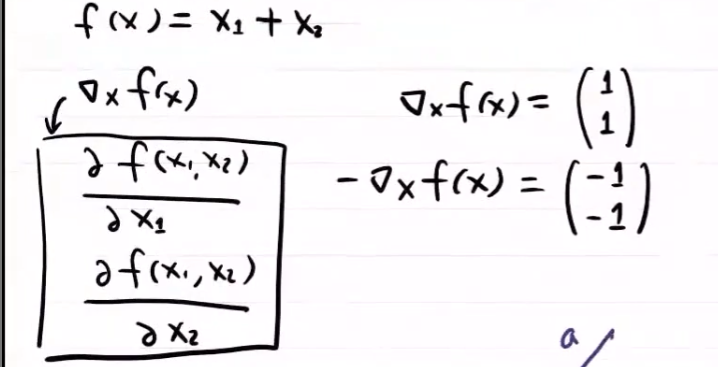 f(x) = x₁ + x₂
∇ₓ f(x)
∂ f(x₁, x₂)
∂ x₁
∂ f(x₁, x₂)
∂ x₂
∇ₓ f(x) = (1 1)
- ∇ₓ f(x) = (-1 -1)
a